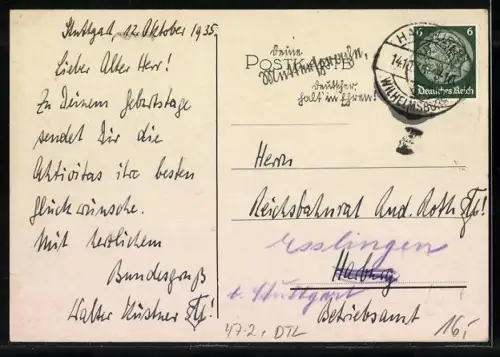 Stuttgart, 12. Oktober 1935.
Lieber Alter Herr!
Zu Deinem Geburtstage
sendet Dir die
Aktivitas ihre besten
Glückwünsche.
Mit herzlichem
Bundesgruß
Walter Küstner
POSTKARTE
deine
Muttersprache,
deutscher
halt' in Ehren!
HARBURG
14.10.
WILHELMSBURG
6 6
Deutsches Reich
Herrn
Reichsbahnrat And. Roth
Esslingen
Harburg
b. Stuttgart
Betriebsamt
47-2, DTL
16,-